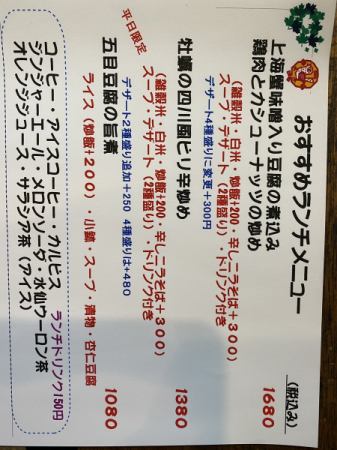 おすすめランチメニュー
(税込み)
上海蟹味噌入り豆腐の煮込み
鶏肉とカシューナッツの炒め 1680
デザート4種盛りに変更+300円
(雑穀米・白米・炒飯+200・辛しニラそば+300)
スープ・デザート(2種盛り)・ドリンク付き
牡蠣の四川風ピリ辛炒め 1380
(雑穀米・白米・炒飯+200・辛しニラそば+300)
スープ・デザート(2種盛り)・ドリンク付き
デザート2種盛り追加+250 4種盛りは+480
平日限定
五目豆腐の旨煮 1080
ライス(炒飯+200)・小鉢・スープ・漬物・杏仁豆腐
ランチドリンク150円
コーヒー・アイスコーヒー・カルピス
ジンジャーエール・メロンソーダ・水仙ウーロン茶
オレンジジュース・サラシア茶(アイス)